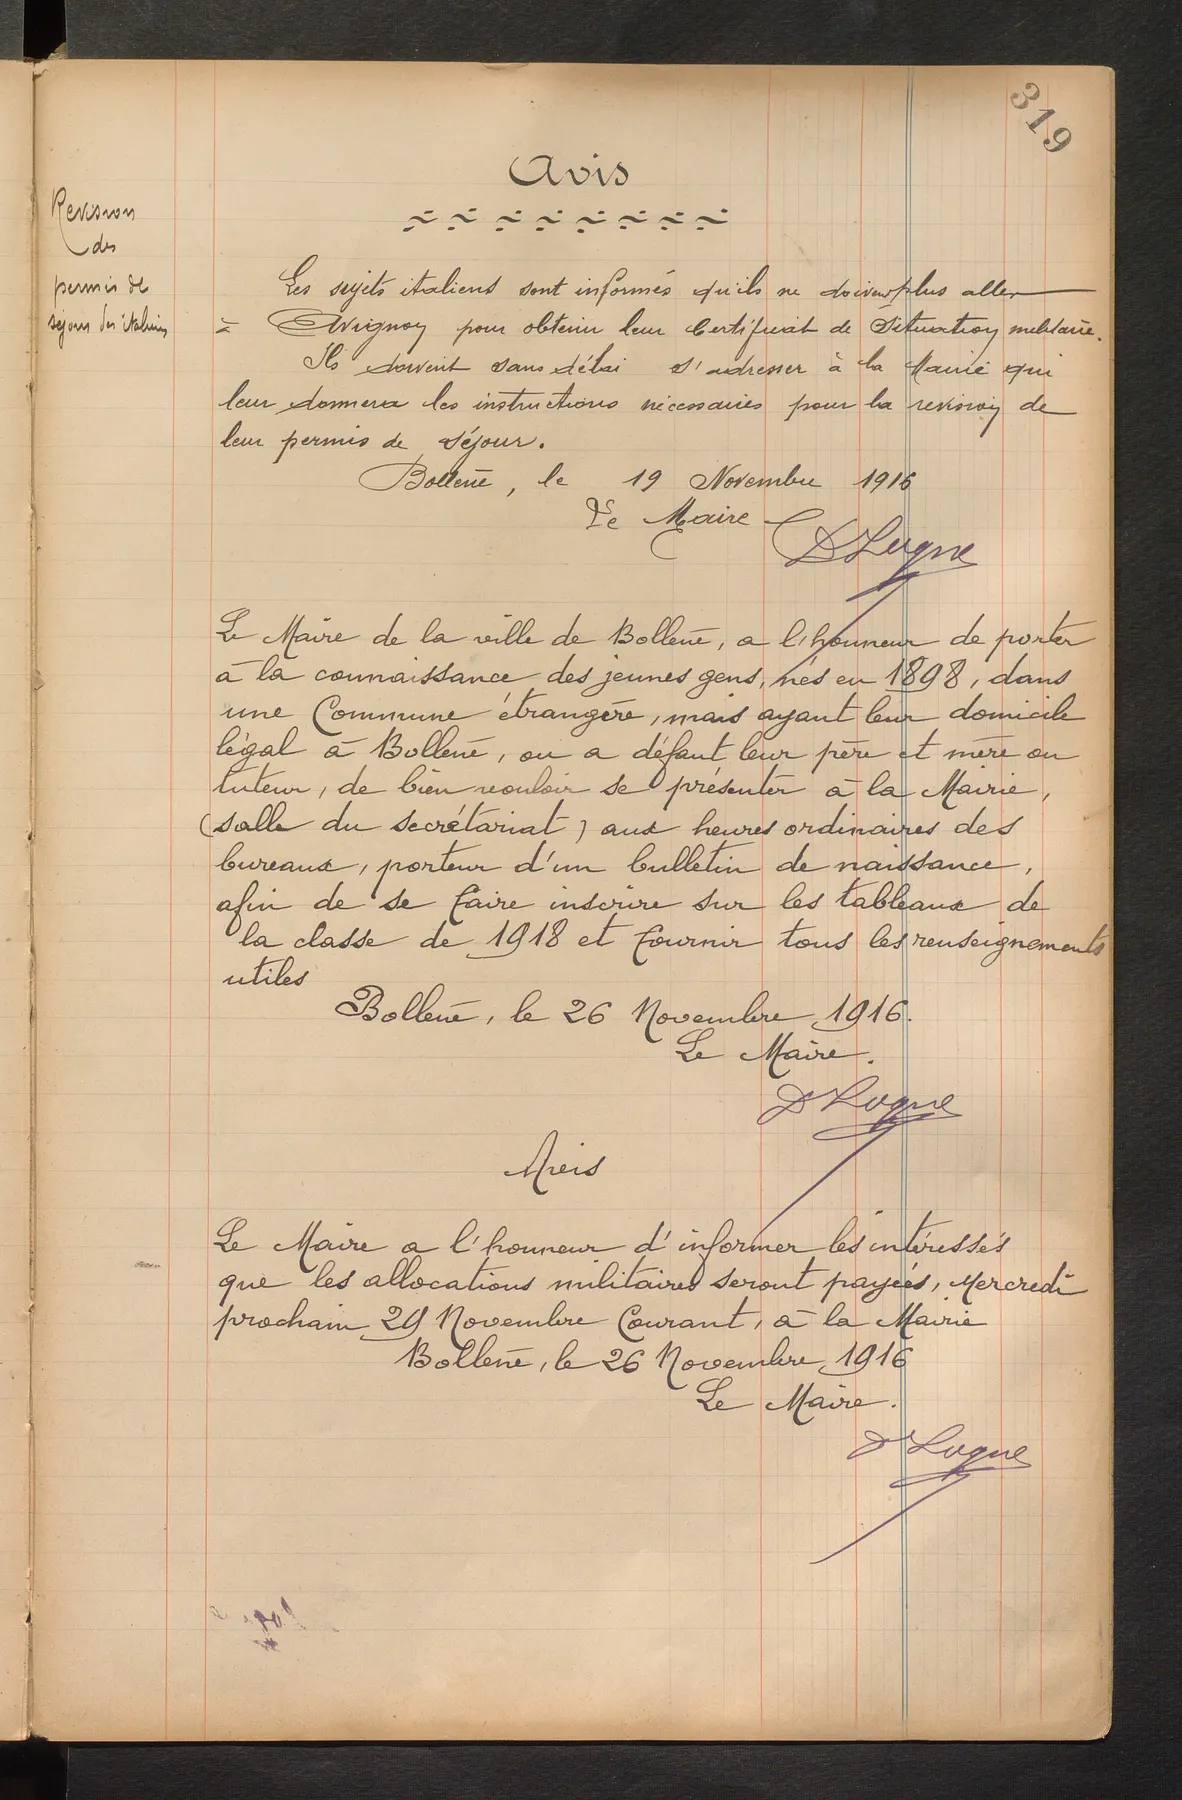 319
Avis
Revision
des
permis de
séjour des italiens
Les sujets italiens sont informés qu'ils ne doivent plus aller
à Avignon pour obtenir leur Certificat de Situation militaire.
Ils doivent sans délai s'adresser à la Mairie qui
leur donnera les instructions nécessaires pour la revision de
leur permis de séjour.
Bollène, le 19 Novembre 1916
Le Maire
Le Maire de la ville de Bollène, a l'honneur de porter
à la connaissance des jeunes gens, nés en 1898, dans
une Commune étrangère, mais ayant leur domicile
légal à Bollène, ou a défaut leur père et mère ou
tuteur, de bien vouloir se présenter à la Mairie,
(salle du secrétariat) aux heures ordinaires des
bureaux, porteur d'un bulletin de naissance,
afin de se faire inscrire sur les tableaux de
la classe de 1918 et fournir tous les renseignements
utiles
Bollène, le 26 Novembre 1916.
Le Maire.
Avis
Le Maire a l'honneur d'informer les intéressés
que les allocations militaires seront payées, Mercredi
prochain 29 Novembre Courant, à la Mairie
Bollène, le 26 Novembre 1916
Le Maire.